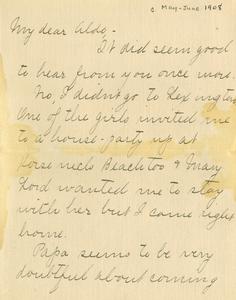 c. May-June 1908
My dear Aldo,-
It did seem good
to hear from you once more.
No, I didn't go to Lexington
One of the girls invited me
to a house-party up at
Horseneck Beach too & Mary
Lord wanted me to stay
with her but I came right
home.
Papa seems to be very
doubtful about coming